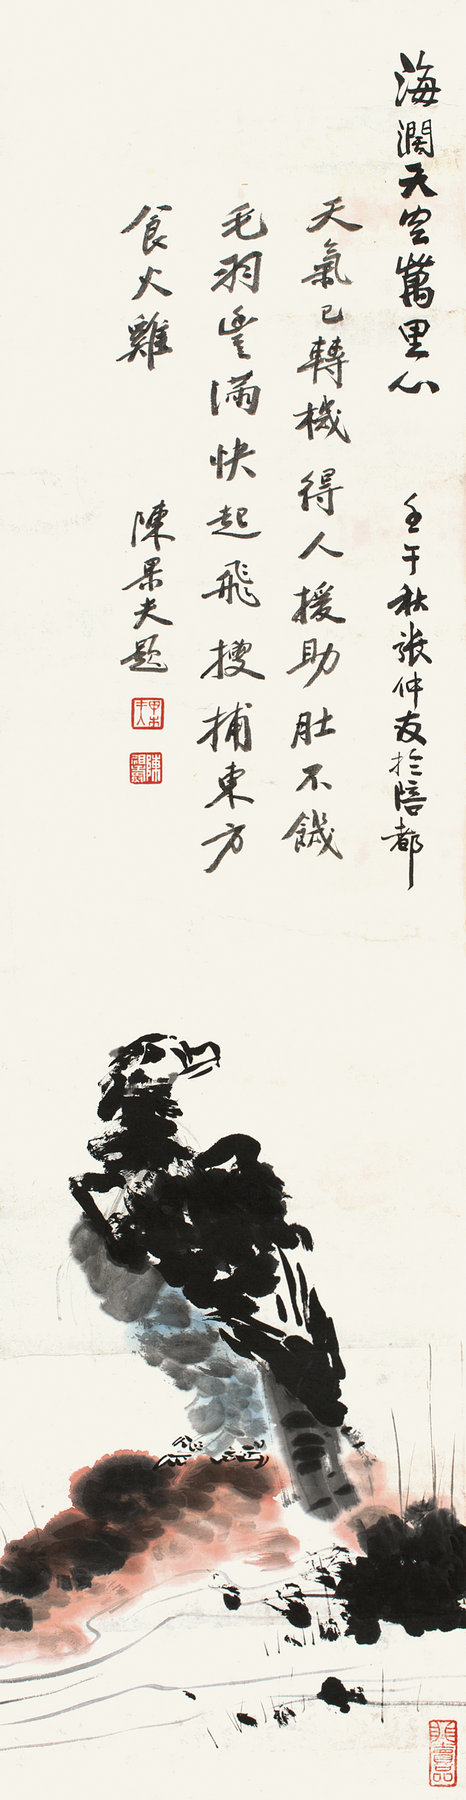 海濶天空萬里心
壬午秋張仲友於陪都
天氣已轉機得人援助肚不饑
毛羽豐滿快起飛搜捕東方
食火雞
陳果夫題
陳祖燾
非賣品